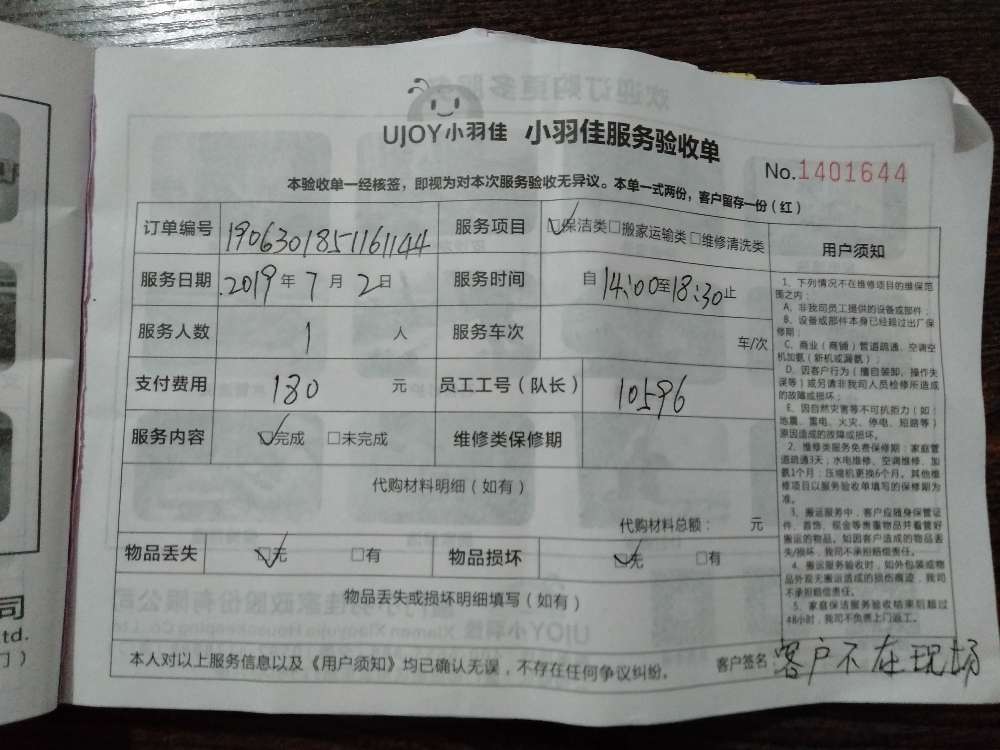 UJOY小羽佳 小羽佳服务验收单
No.1401644
本验收单一经核签，即视为对本次服务验收无异议。本单一式两份，客户留存一份（红）
订单编号 1906301851161144 服务项目 ☑保洁类□搬家运输类□维修清洗类
服务日期 2019年7月2日 服务时间 自14:00至18:30止
服务人数 1 人 服务车次 车/次
支付费用 180 元 员工工号（队长） 10596
服务内容 ☑完成 □未完成 维修类保修期
代购材料明细（如有）
代购材料总额： 元
物品丢失 ☑无 □有 物品损坏 ☑无 □有
物品丢失或损坏明细填写（如有）
本人对以上服务信息以及《用户须知》均已确认无误，不存在任何争议纠纷。 客户签名 客户不在现场
用户须知
1、下列情况不在维修项目的维保范
围之内：
A、非我司员工提供的设备或部件；
B、设备或部件本身已经超过出厂保
修期；
C、商业（商铺）管道疏通、空调空
机加氨（新机或漏氨）；
D、因客户行为（擅自装卸、操作失
误等）或另请非我司人员检修所造成
的故障或损坏；
E、因自然灾害等不可抗拒力（如：
地震、雷电、火灾、停电、短路等）
原因造成的故障或损坏。
2、维修类服务免费保修期：家庭管
道疏通3天；水电维修、空调维修、加
氨1个月；压缩机更换6个月。其他维
修项目以服务验收单填写的保修期为
准。
3、搬运服务中，客户应随身保管证
件、首饰、现金等贵重物品并看管好
搬运的物品。如因客户造成的物品丢
失/损坏，我司不承担赔偿责任。
4、搬运服务验收时，如外包装或物
品外观无搬运造成的损伤痕迹，我司
不承担赔偿责任。
5、家庭保洁服务验收结束后超过
48小时，我司不负责上门返工。
司
td.
门）